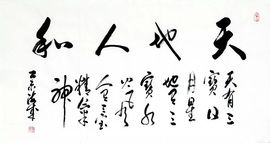 天地人和
天有三
寶日
月星
地有三
寶水
火風
人有三寶
精氣
神